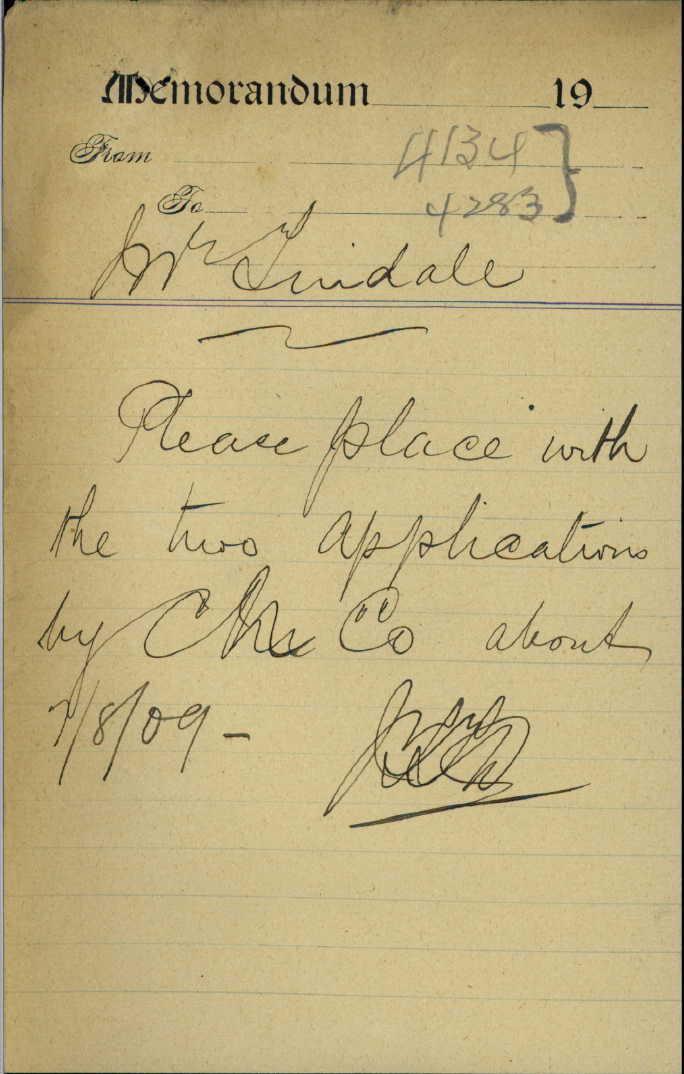 Memorandum 19
From
4134
To
4283
Mr Tindale
Please place with
the two applications
by Co about
7/8/09 -